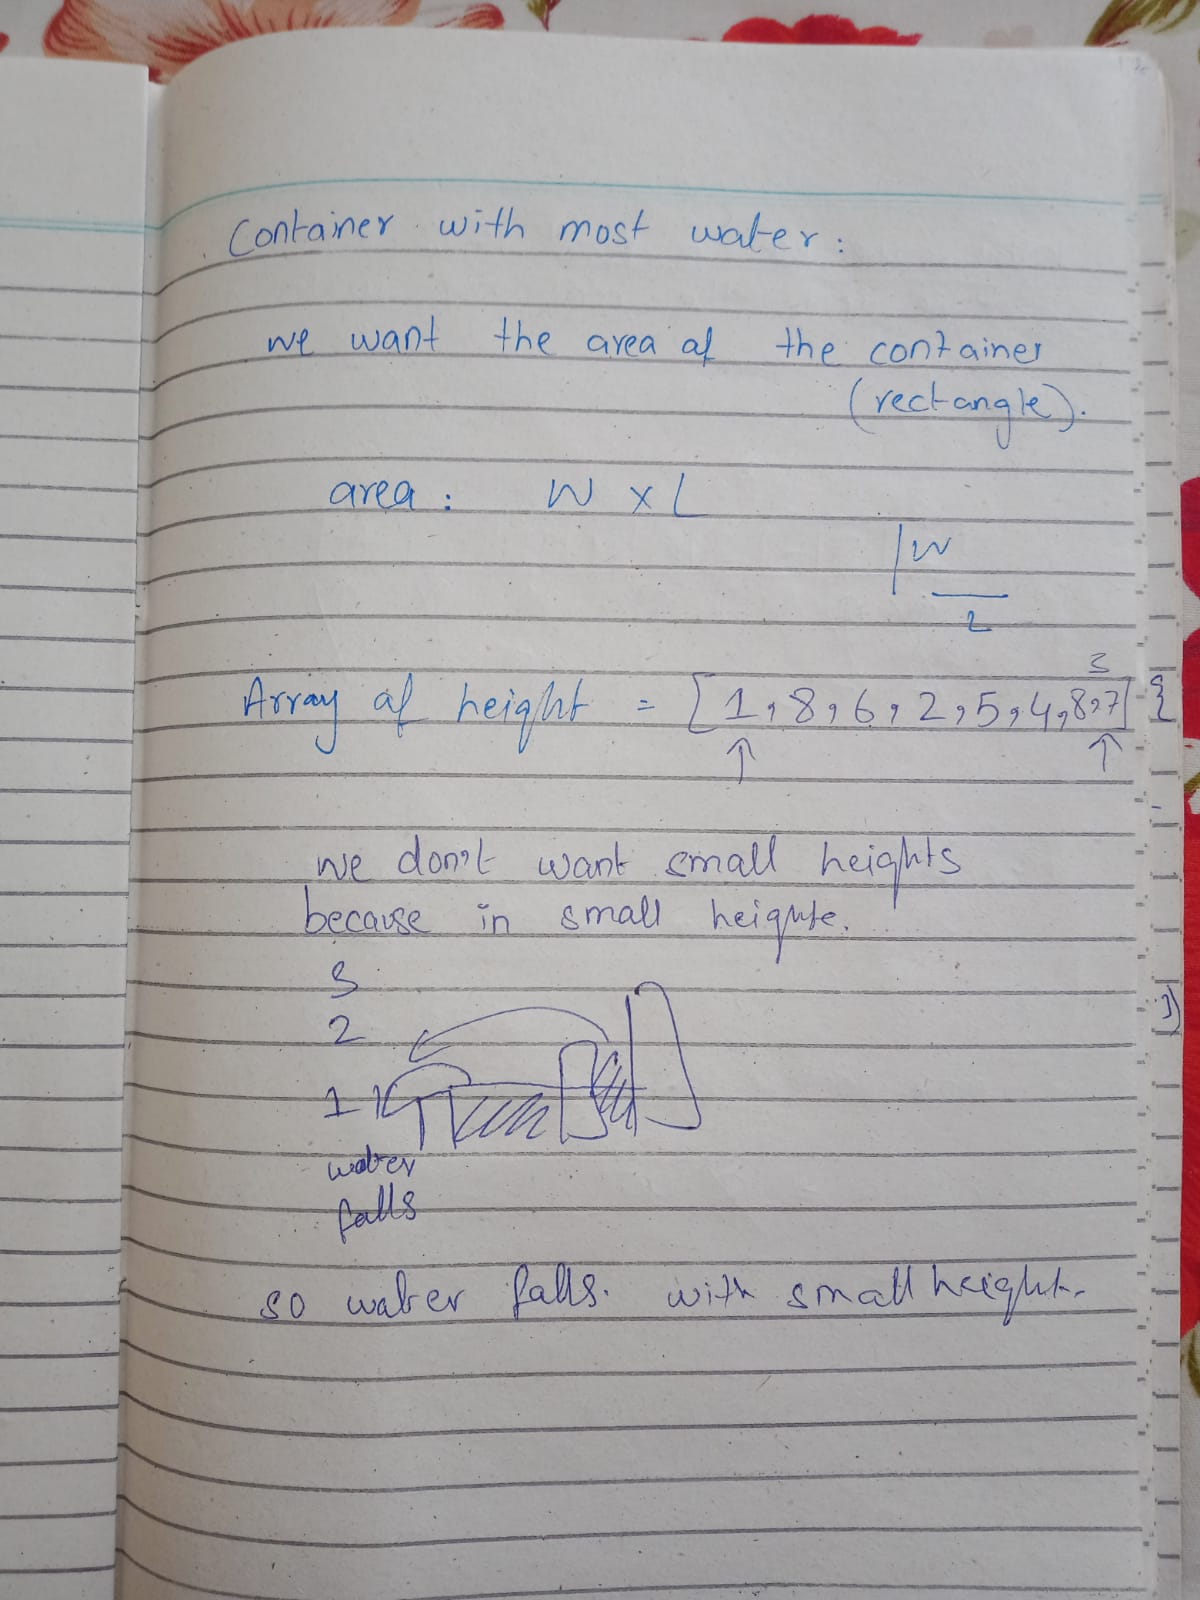 Container with most water:
we want the area of the container
(rectangle).
area : W x L
W
2
3
Array of height = [1,8,6,2,5,4,8,7]
we don't want small heights
because in small heighte.
3
2
1
water
falls
so water falls. with small height.